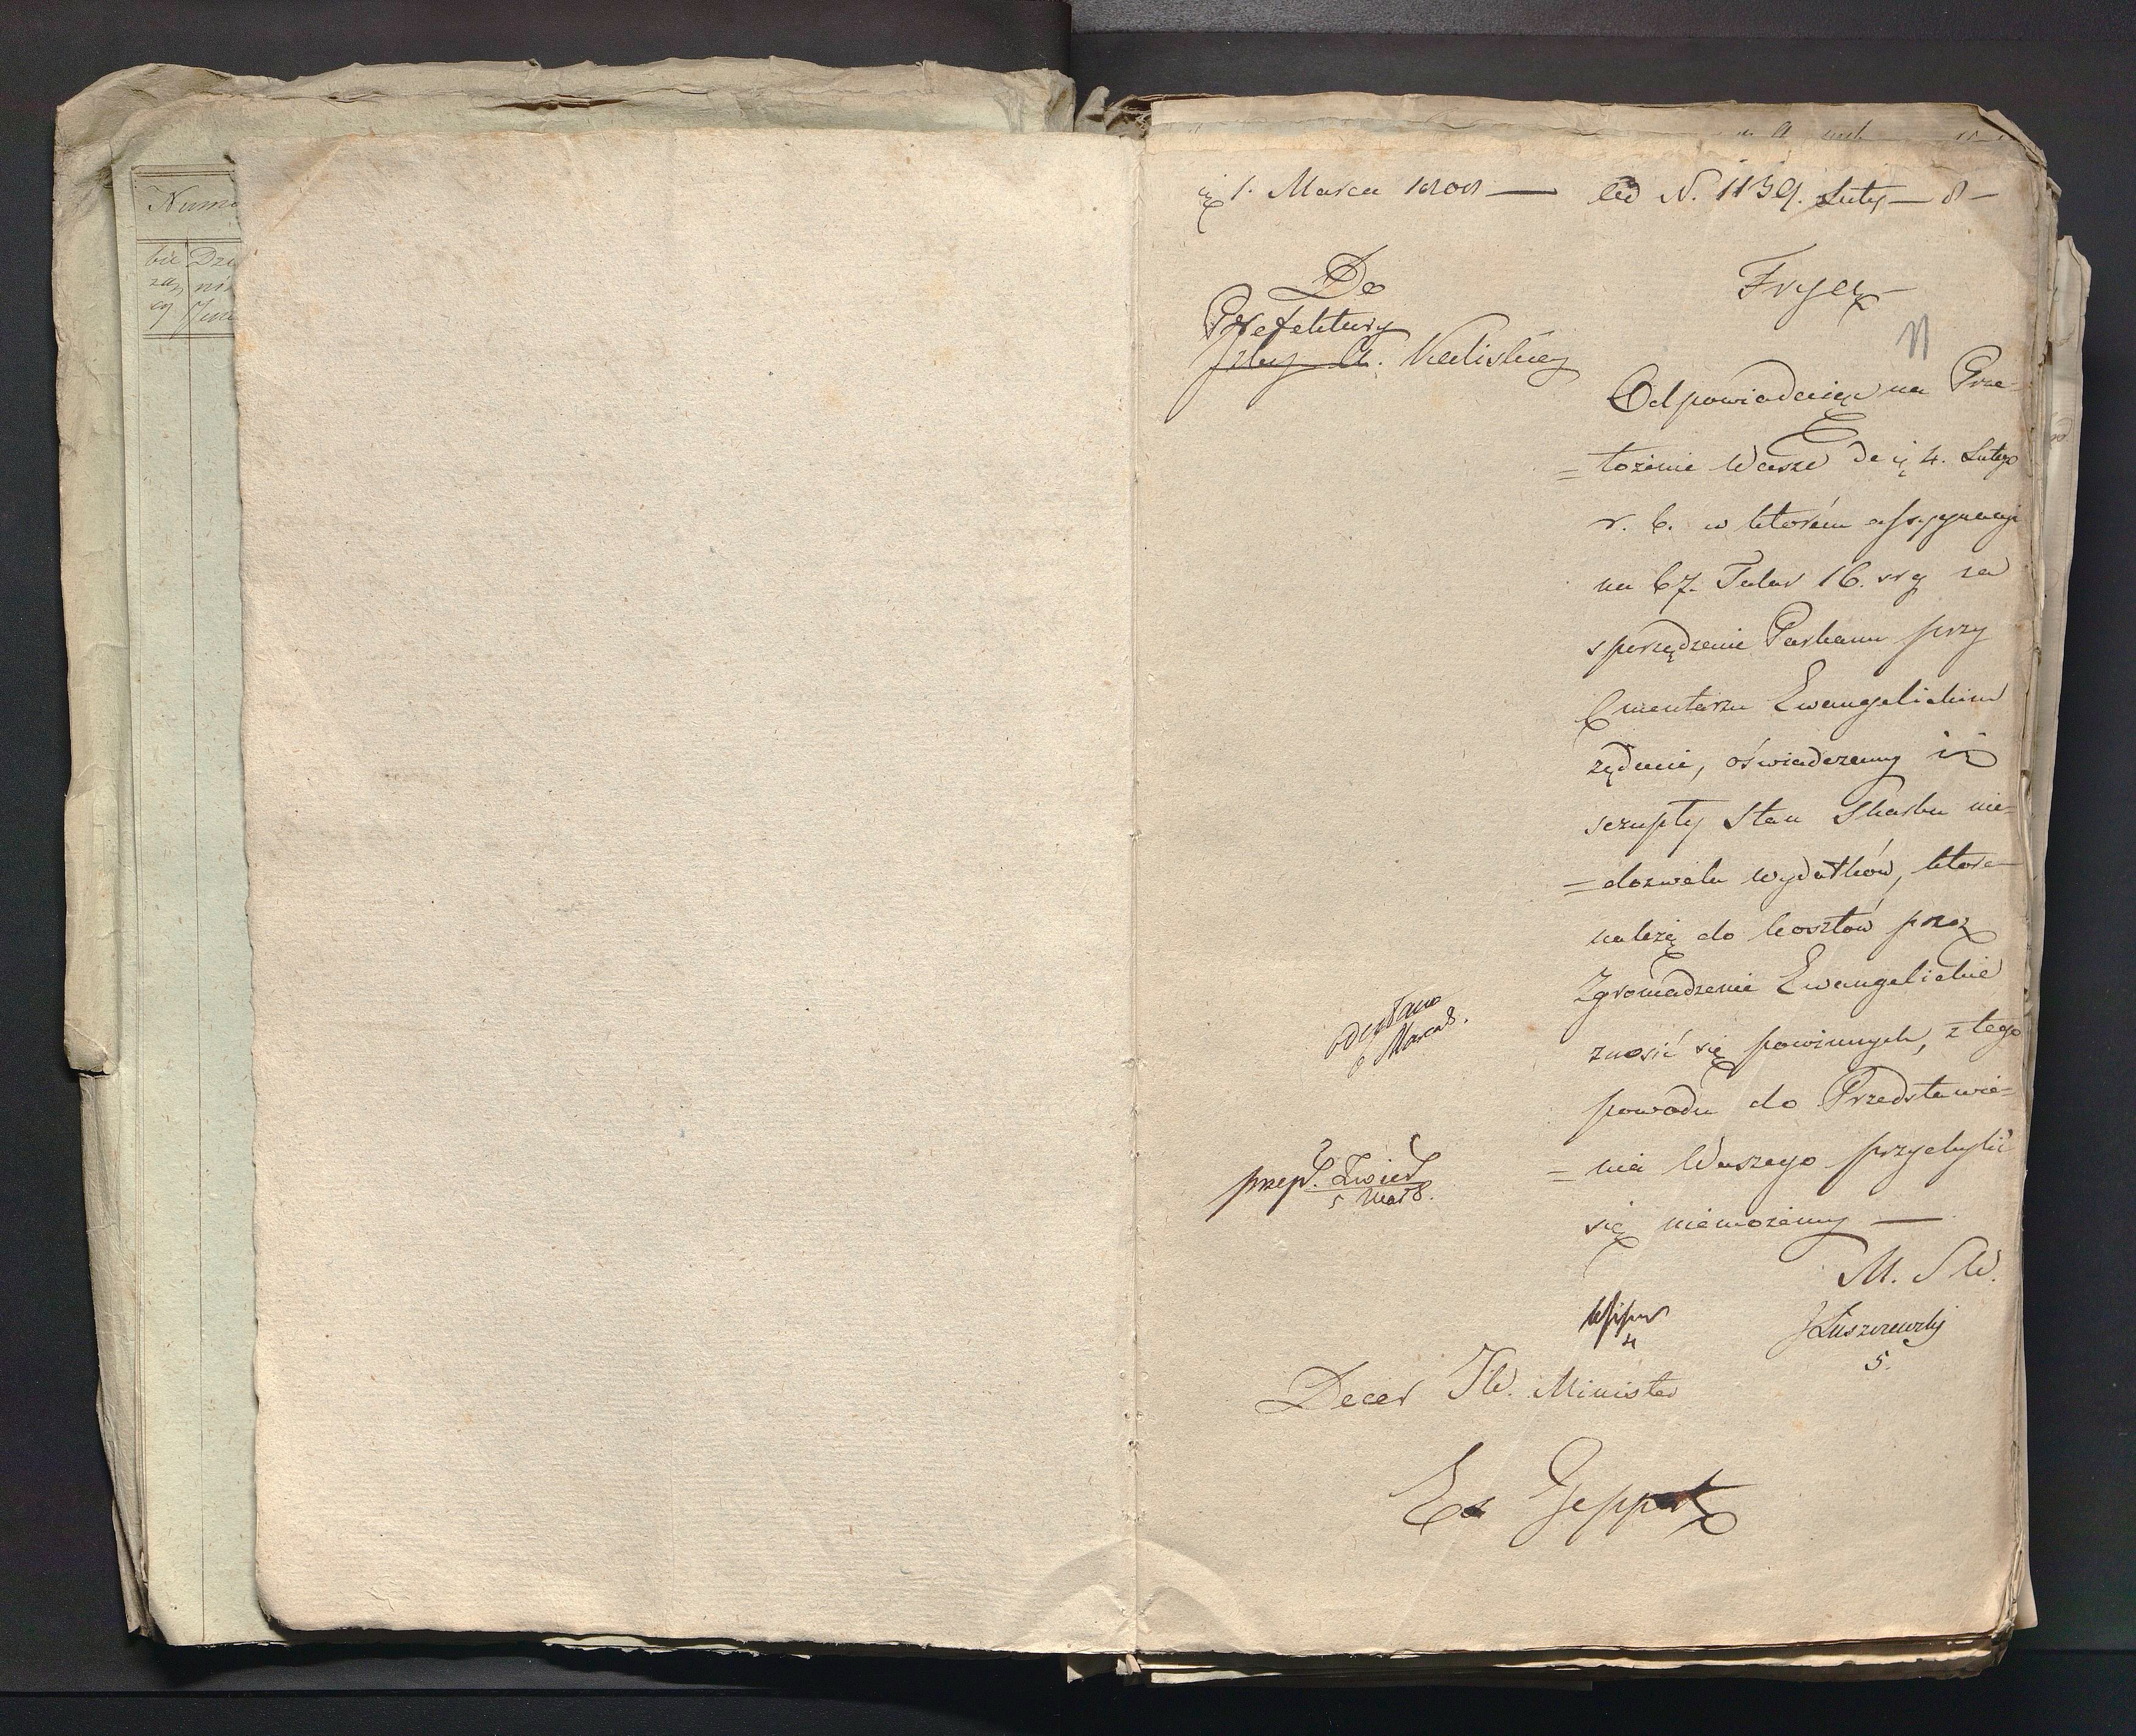 Numo
bie Dzi
zą nik
cy
1. Marca 1808 —
ad N. 1139. Luty — 8 —
Do
Prefektury
Izby A. Kaliskiey
Fryer
11
Odpowiadaiąc na Prze-
=łożenie Wasze de 4. Lutego
r. b. w którem assygnacyi
na 67. Talar 16. srg za
sporządzenie Parkanu przy
Cmentarzu Ewangelickim
żądacie, oświadczamy iż
szczupły Stan Skarbu nie=
=dozwala wydatków, które
należą do kosztów przez
Zgromadzenie Ewangelickie
znosić się powinnych, z tego
powodu do Przedstawie=
=nia Waszego przychylić
się niemożemy —
M. S W.
odesłano
6 Marca 8.
przep.
5 Mar 8.
4
JŁuszczewski
5.
Decer JW. Minister
Ex Geppert